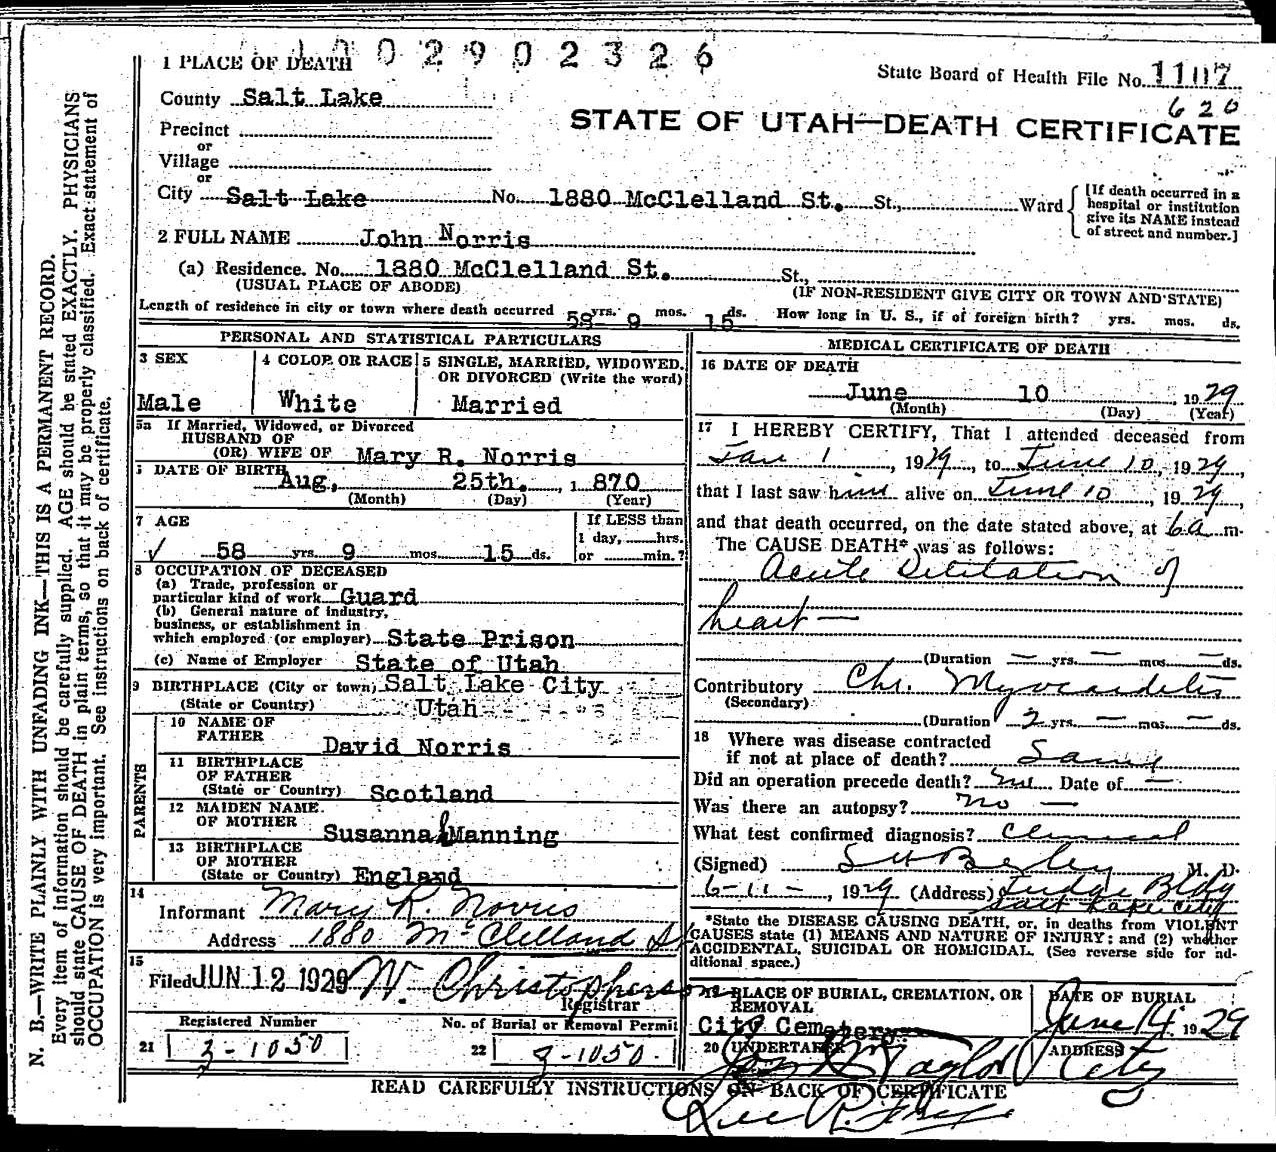 1002902326
1 PLACE OF DEATH
State Board of Health File No. 1107
620
County Salt Lake
STATE OF UTAH—DEATH CERTIFICATE
Precinct
or
Village
or
City Salt Lake No. 1880 McClelland St. St., Ward
[If death occurred in a
hospital or institution
give its NAME instead
of street and number.]
2 FULL NAME John Norris
(a) Residence. No. 1880 McClelland St. St.,
(USUAL PLACE OF ABODE)
(IF NON-RESIDENT GIVE CITY OR TOWN AND STATE)
Length of residence in city or town where death occurred 58 yrs. 9 mos. 15 ds. How long in U. S., if of foreign birth? yrs. mos. ds.
PERSONAL AND STATISTICAL PARTICULARS
3 SEX
Male
4 COLOR OR RACE
White
5 SINGLE, MARRIED, WIDOWED,
OR DIVORCED (Write the word)
Married
5a If Married, Widowed, or Divorced
HUSBAND OF
(OR) WIFE OF Mary R. Norris
6 DATE OF BIRTH
Aug, 25th, 1870
(Month) (Day) (Year)
7 AGE
58 yrs. 9 mos. 15 ds.
If LESS than
1 day, hrs.
or min.?
8 OCCUPATION OF DECEASED
(a) Trade, profession or
particular kind of work Guard
(b) General nature of industry,
business, or establishment in
which employed (or employer) State Prison
(c) Name of Employer State of Utah
9 BIRTHPLACE (City or town) Salt Lake City
(State or Country) Utah
PARENTS
10 NAME OF
FATHER
David Norris
11 BIRTHPLACE
OF FATHER
(State or Country) Scotland
12 MAIDEN NAME
OF MOTHER
Susannah Manning
13 BIRTHPLACE
OF MOTHER
(State or Country) England
14
Informant Mary R. Norris
Address 1880 McClelland St
15
Filed JUN 12 1929 W. Christopherson
Registrar
Registered Number
21 3-1050
No. of Burial or Removal Permit
22 9-1050.
MEDICAL CERTIFICATE OF DEATH
16 DATE OF DEATH
June 10 1929
(Month) (Day) (Year)
17 I HEREBY CERTIFY, That I attended deceased from
Jan 1, 1929, to June 10, 1929,
that I last saw him alive on June 10, 1929,
and that death occurred, on the date stated above, at 6 a m.
The CAUSE DEATH* was as follows:
Acute Dilitation of
heart —
(Duration — yrs. — mos. — ds.
Contributory Chr. Myocarditis
(Secondary)
(Duration 2 yrs. — mos. — ds.
18 Where was disease contracted
if not at place of death? Same
Did an operation precede death? no Date of —
Was there an autopsy? no —
What test confirmed diagnosis? Clinical
(Signed) M. D.
6-11-, 1929 (Address) Judge Bldg
Salt Lake City
*State the DISEASE CAUSING DEATH, or, in deaths from VIOLENT
CAUSES state (1) MEANS AND NATURE OF INJURY; and (2) whether
ACCIDENTAL, SUICIDAL OR HOMICIDAL. (See reverse side for ad-
ditional space.)
19 PLACE OF BURIAL, CREMATION, OR
REMOVAL
City Cemetery
DATE OF BURIAL
June 14 1929
20 UNDERTAKER
Taylor
ADDRESS
City
READ CAREFULLY INSTRUCTIONS ON BACK OF CERTIFICATE
N. B.—WRITE PLAINLY WITH UNFADING INK—THIS IS A PERMANENT RECORD.
Every item of information should be carefully supplied. AGE should be stated EXACTLY. PHYSICIANS
should state CAUSE OF DEATH in plain terms, so that it may be properly classified. Exact statement of
OCCUPATION is very important. See instructions on back of certificate.